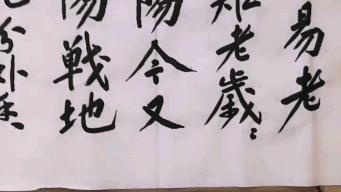 易老
难老歲〻
陽今又
陽戦地
分外香